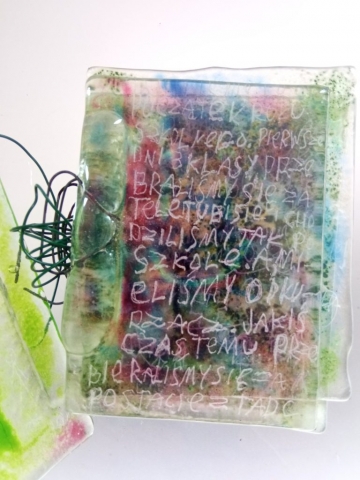 SZKOLNEGO. PIERWSZE
DNI 3 KLASY PRZE
BRALIŚMY SIĘ ZA
TELETUBISIE I CHO
DZILIŚMY TAK PO
SZKOLE. A MI
ELIŚMY ODKU
RZACZ. JAKIŚ
CZAS TEMU PRZE
BIERALIŚMY SIĘ ZA
POSTACIE Z TADE